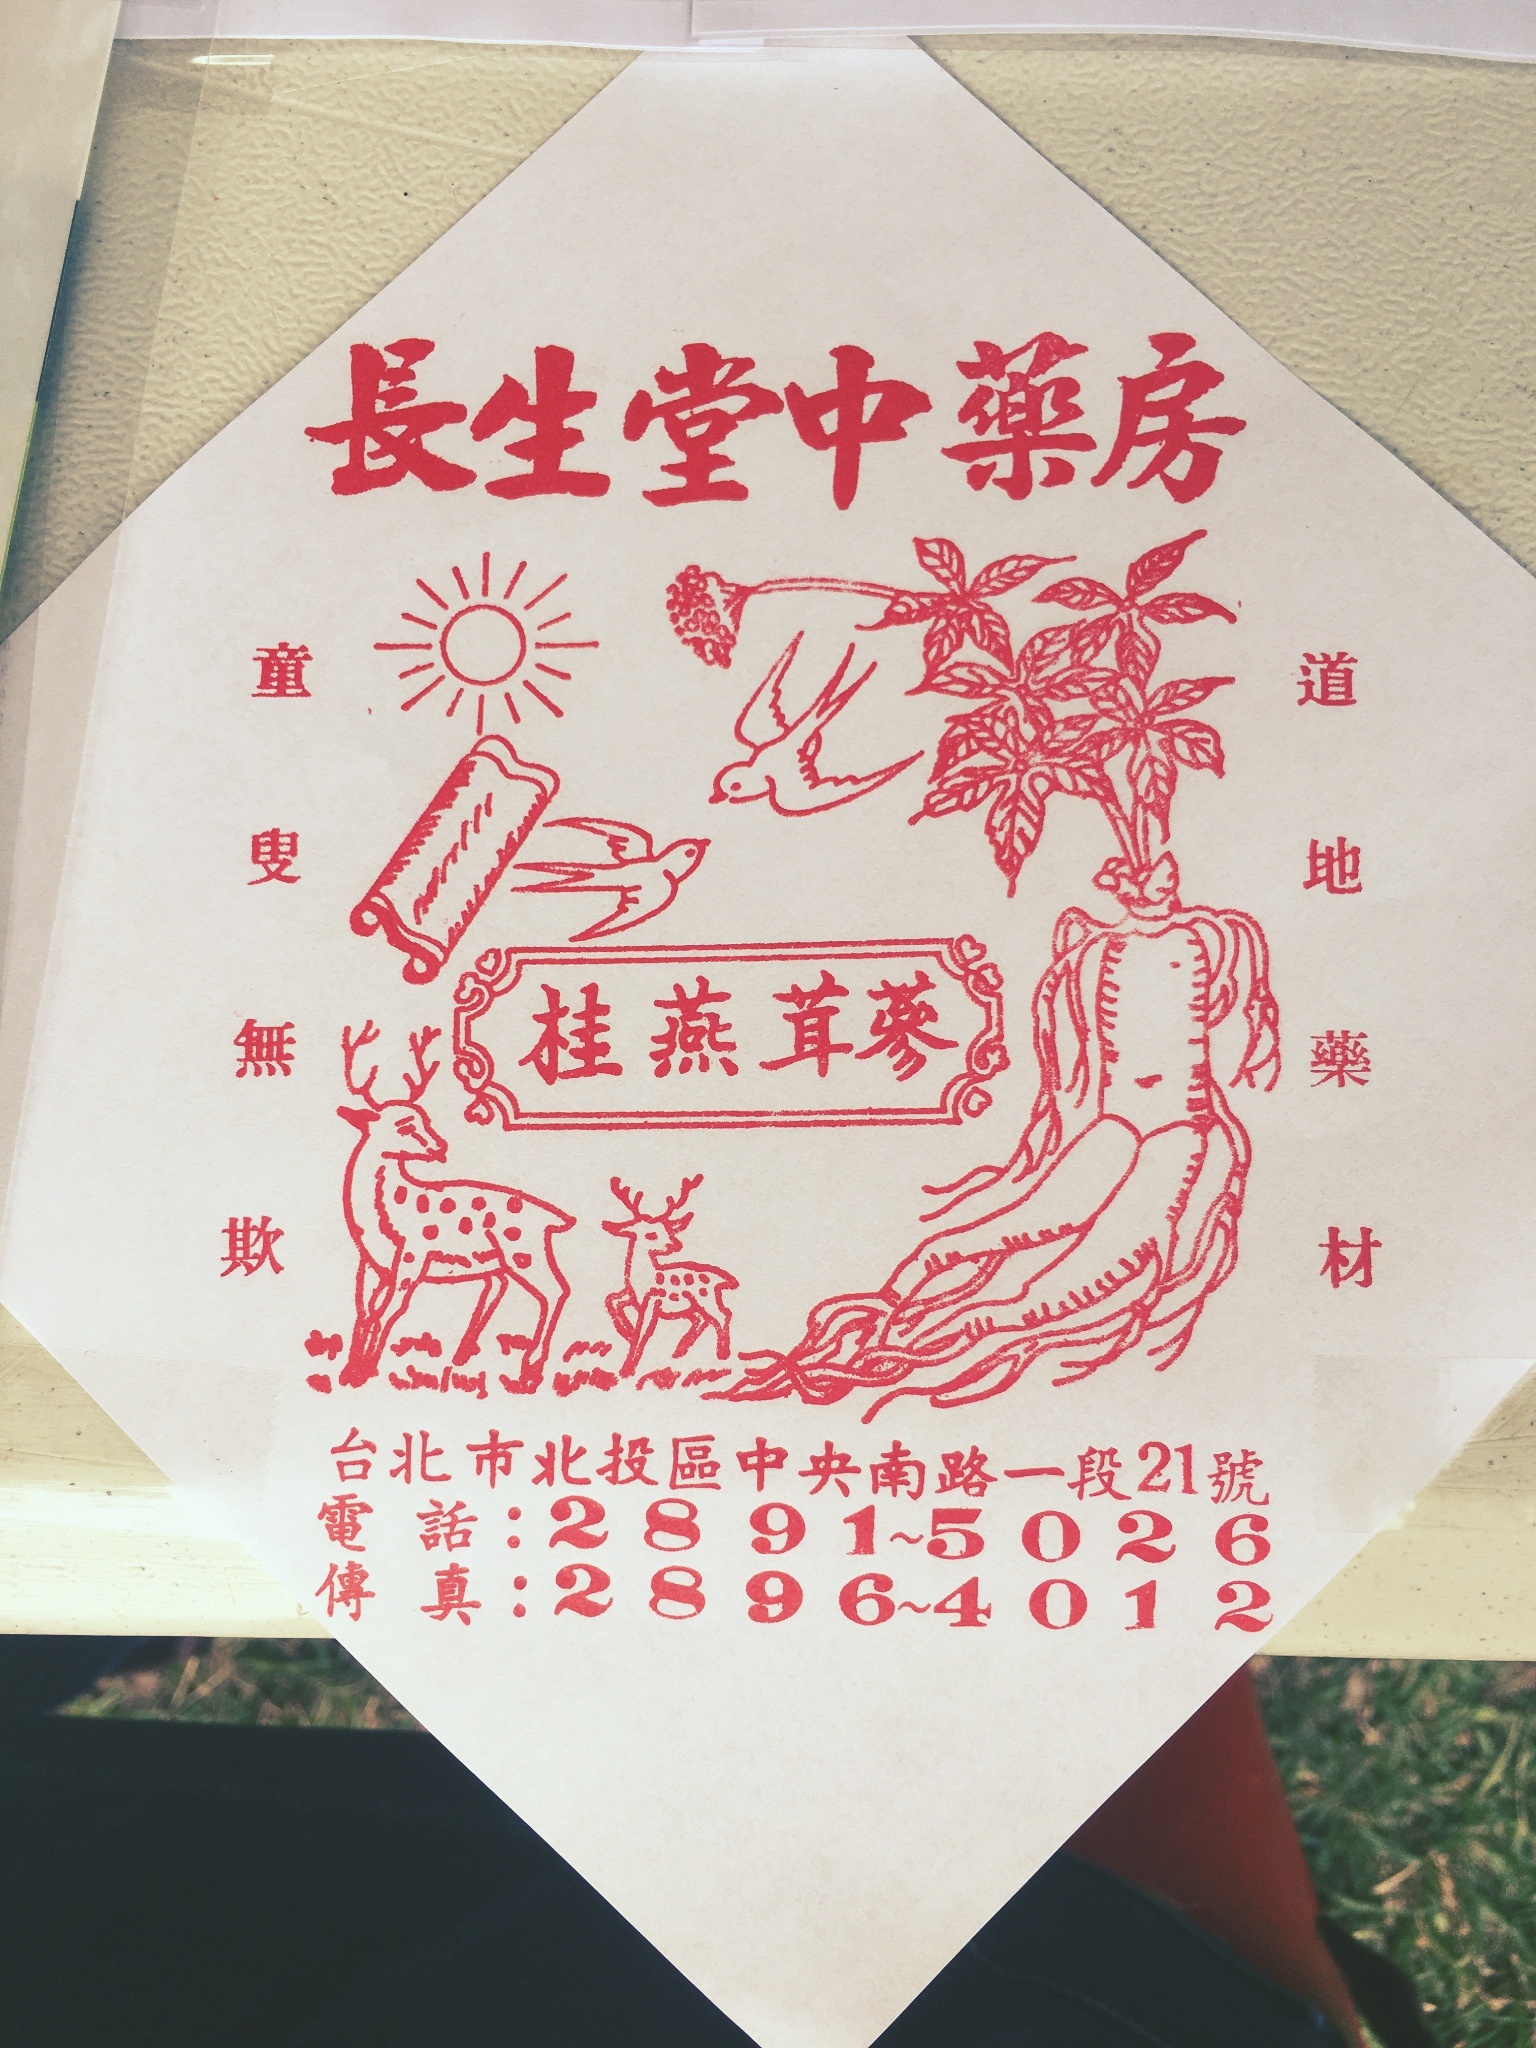 長生堂中藥房
道地藥材
童叟無欺
桂燕茸蔘
台北市北投區中央南路一段21號
電話:2891~5026
傳真:2896~4012